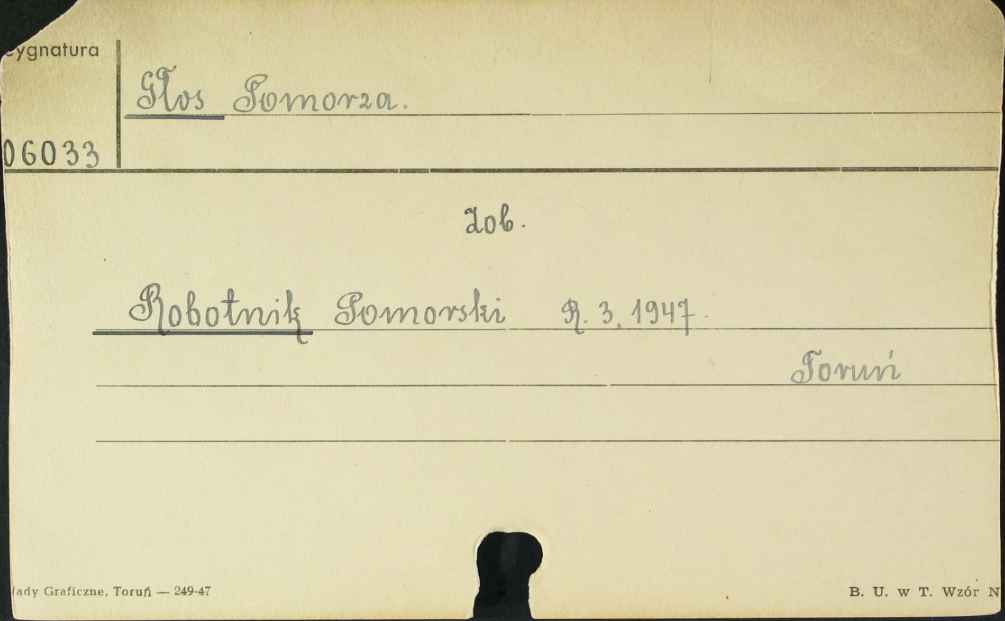 Sygnatura
Głos Pomorza.
06033
zob.
Robotnik Pomorski R. 3. 1947.
Toruń
łady Graficzne, Toruń — 249-47
B. U. w T. Wzór N